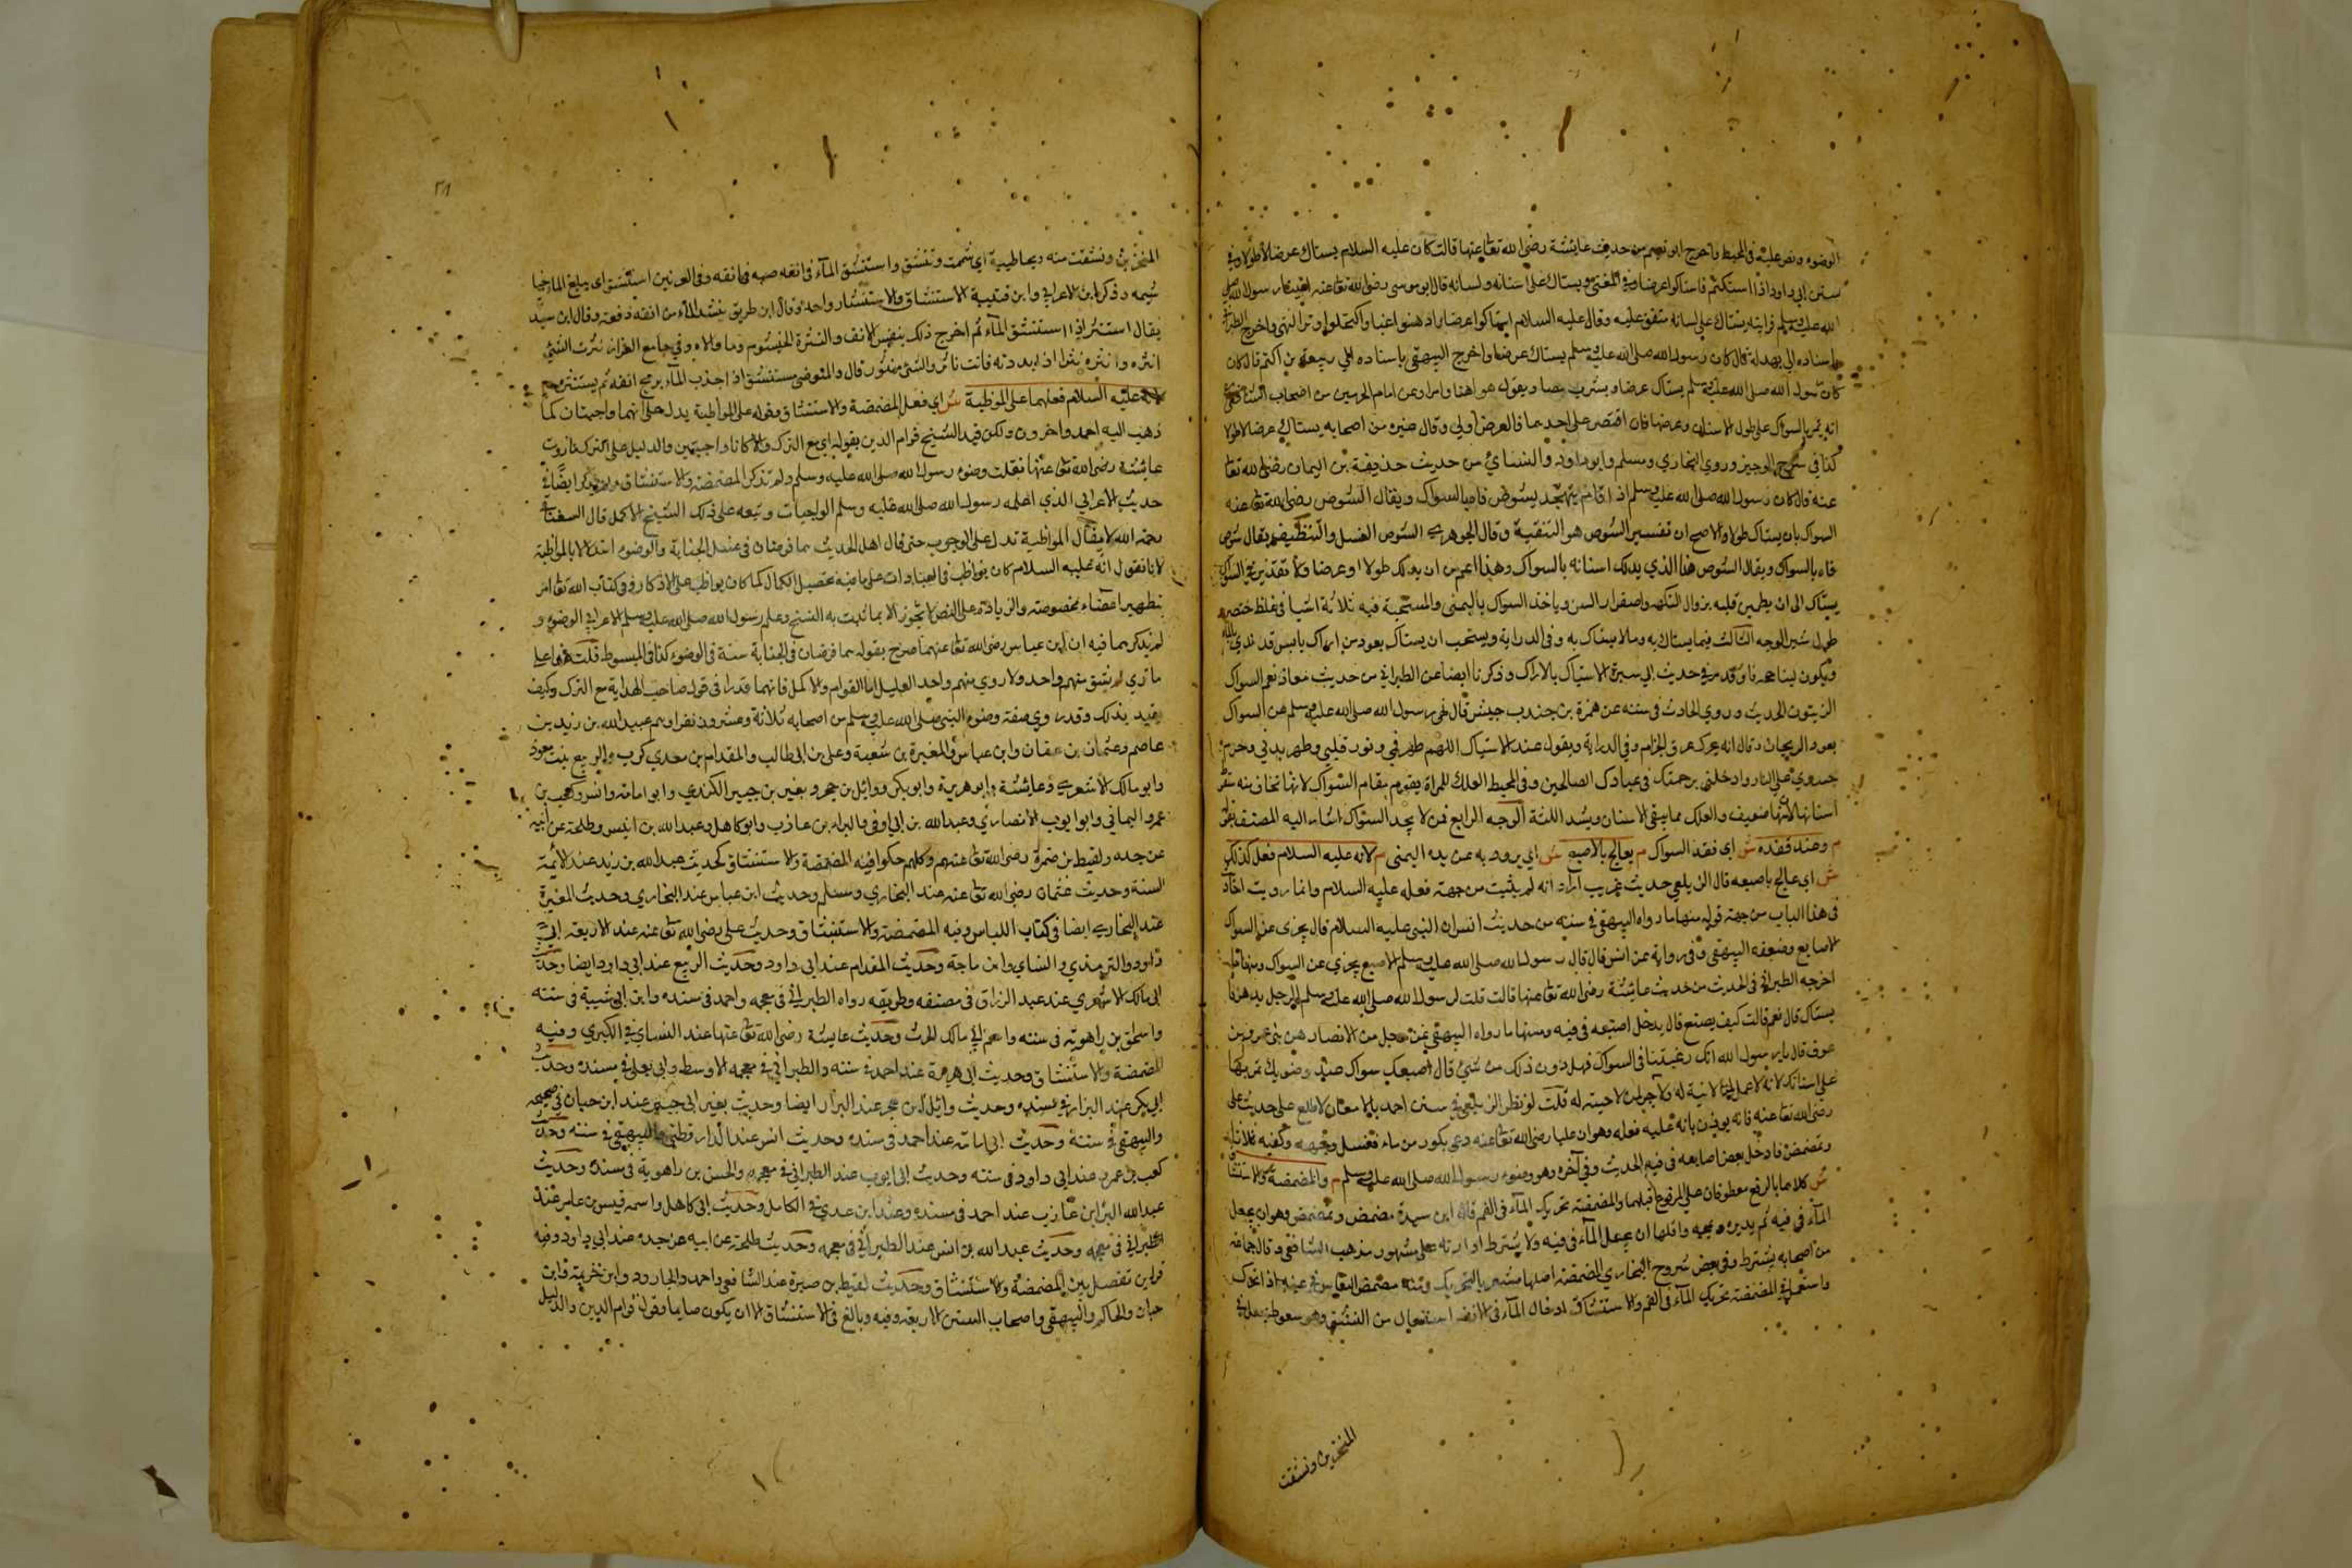 الوضوء ونص عليه في المحيط واخرج ابو نعيم من حديث عايشة رضي الله تعا عنها قالت كان عليه السلام يستاك عرضا لا طولا وفي
سنن ابي داود اذا استكتم فاستاكوا عرضا وفي المغني ويستاك على اسنانه ولسانه قال ابو موسى رضي الله تعا عنه اتينا رسول الله صلى
الله عليه وسلم فرايته يستاك على لسانه متفق عليه وقال عليه السلام استاكوا عرضا وادهنوا غبا واكتحلوا وترا انتهى واخرج الطبراني
باسناده الى بهز قال كان رسول الله صلى الله عليه وسلم يستاك عرضا واخرج البيهقي باسناده الى ربيعة بن اكثم قال كان
رسول الله صلى الله عليه وسلم يستاك عرضا ويشرب مصا ويقول هو اهنا وامرا وعن امام الحرمين من اصحاب الشافعي
انه يمر بالسواك على طول الاسنان وعرضها فان اقتصر على احديهما فالعرض اولى وقال غيره من اصحابه يستاك عرضا لا طولا
كذا في شرح الوجيز وروى البخاري ومسلم وابو داود والنسائي من حديث حذيفة بن اليمان رضي الله تعا
عنه قال كان رسول الله صلى الله عليه وسلم اذا قام يتهجد يشوص فاه بالسواك ويقال الشوص رضي الله تعا عنه
السواك بان يستاك طولا والاصح ان تفسير الشوص هو التنقية وقال الجوهري الشوص الغسل والتنظيف يقال شوص
فاه بالسواك ويقال الشوص هذا الذي يدلك اسنانه بالسواك وهذا اعم من ان يدلك طولا او عرضا ولا تقدير في السواك
يستاك الى ان يطمين قلبه بزوال النكهة واصفرار السن وياخذ السواك باليمنى والمستحبة فيه ثلاثة اشيا في غلظ خنصره
طول شبر الوجه الثالث فيما يستاك به وما لا يستاك به وفي الدراية ويستحب ان يستاك بعود من اراك يابس قد ندي بالما
ويكون لينا وقد مر في حديث ابي سبرة الاستياك بالاراك وذكرنا ايضا عن الطبراني من حديث معاذ نعم السواك
الزيتون الحديث وروى الحارث في مسنده عن ضمرة بن حبيب قال نهى رسول الله صلى الله عليه وسلم عن السواك
بعود الريحان وقال انه يحرك عرق الجذام وفي الدراية ويقول عند الاستياك اللهم طهر فمي ونور قلبي وطهر بدني وحرم
جسدي على النار وادخلني برحمتك في عبادك الصالحين وفي المحيط العلك للمراة يقوم مقام السواك لانها تخاف منه سقوط
اسنانها لانها ضعيف والعلك مما ينقي الاسنان ويشد اللثة الوجه الرابع فمن لا يجد السواك اشار اليه المصنف بقوله
م وعند فقده ش اي فقد السواك م يعالج بالاصبع ش اي يروده به عن يده اليمنى م لانه عليه السلام فعل كذلك
ش اي عالج باصبعه قال الزيلعي حديث غريب اراد انه لم يثبت من جهة فعله عليه السلام وانما رويت احاديث
في هذا الباب من جهة قوله منها ما رواه البيهقي في سننه من حديث انس ان النبي عليه السلام قال يجزى عن السواك
الاصابع وضعفه البيهقي وفي رواية عن انس قال قال رسول الله صلى الله عليه وسلم الاصبع يجزي عن السواك ومنها ما
اخرجه الطبراني في الحديث من حديث عايشة رضي الله تعا عنها قالت قلت لرسول الله صلى الله عليه وسلم الرجل يدهن فاه
يستاك قال نعم قالت كيف يصنع قال يدخل اصبعه في فيه ومنها ما رواه البيهقي عن رجل من الانصار من بني عمرو بن
عوف قال يا رسول الله انك رغبتنا في السواك فهل دون ذلك من شي قال اصبعك سواك عند وضوئك تمر بها
على اسنانك لانه لا عمل لمن لا نية له ولا اجر لمن لا حسبة له قلت لو نظر الزيلعي في سنن احمد بالامعان لاطلع على حديث على
رضي الله تعا عنه فانه يوذن بانه عليه فعله وهو ان عليا رضي الله تعا عنه دعى بكوز من ماء فغسل وجهه وكفيه ثلاثا
وتمضمض فادخل بعض اصابعه في فيه الحديث وفي آخره وهو وضوء رسول الله صلى الله عليه وسلم م والمضمضة والاستنشاق
ش كلاهما بالرفع معطوفان على المرفوع قبلهما والمضمضة تحريك الماء في الفم قال ابن سيدة مضمض وتمضمض وهو ان يجعل
الماء في فيه ثم يديره ويمجه واقلها ان يجعل الماء في فيه ولا يشترط ادارته على مشهور مذهب الشافعي وقال جماعة
من اصحابه يشترط وفي بعض شروح البخاري المضمضة اصلها مشعر بالتحريك ومنه مضمض النعاس في عينيه اذا تحرك
واستعمل في المضمضة تحريك الماء في الفم والاستنشاق ادخال الماء في الانف استفعال من التنشق وهو سعوط يجعل في
المنخرين ونشقت
٢٨
المنخرين ونشقت منه ريحا طيبة اي شممت وتنشق واستنشق الماء في انفه صبه في انفه وفي الغريبين استنشق اي يبلغ الما خيا
شيمه وذكر ابن الاعرابي وابن قتيبة الاستنشاق والاستنثار واحد وقال ابن طريف نثر الماء من انفه دفعه وقال ابن سيد
يقال استنثر اذا استنشق الماء ثم اخرج ذلك بنفس الانف والنثرة الخيشوم وما والاه وفي جامع القزاز نثرت الشي
انثره وانثره نثرا اذا بددته فانت ناثر والشي منثور قال والمتوضي يستنشق اذا جذب الماء بريح انفه ثم يستنثره
لانه عليه السلام فعلهما على المواظبة ش اي فعل المضمضة والاستنشاق وقوله على المواظبة يدل على انهما واجبتان كما
ذهب اليه احمد واخرون ولكن قيد الشيخ قوام الدين بقوله اي مع الترك والا كانا واجبتين والدليل على الترك ما روت
عائشة رضي الله تعا عنها نقلت وضوء رسول الله صلى الله عليه وسلم ولم تذكر المضمضة والاستنشاق ولم ايضا في
حديث الاعرابي الذي اعلمه رسول الله صلى الله عليه وسلم الواجبات وتبعه على ذلك الشيخ الاكمل قال السغناقي
رحمه الله لا يقال المواظبة تدل على الوجوب حتى قال اهل الحديث هما فرضان في غسل الجنابة والوضوء استدلالا بالمواظبة
لانا نقول انه عليه السلام كان يواظب في العبادات على ما فيه تحصيل الكمال كما كان يواظب على الاذكار وفي كتاب الله تعا امر
بتطهير اعضاء مخصوصة والزيادة على النص لا تجوز الا بما يثبت به النسخ وعلم رسول الله صلى الله عليه وسلم الاعرابي الوضوء و
لم يذكرهما فيه ان ابن عباس رضي الله تعا عنهما صرح بقوله هما فرضان في الجنابة سنة في الوضوء كذا في المبسوط قلت
ما روي لم يتفق منهم واحد ولا روي منهم واحد العليل اما القوام والاكمل فانهما قدرا في قول صاحب الهداية مع الترك وكيف
يقيد بذلك وقد روي صفة وضوء النبي صلى الله عليه وسلم من اصحابه ثلاثة وعشرون نفرا وهم عبد الله بن زيد بن
عاصم وعثمان بن عفان وابن عباس والمغيرة بن شعبة وعلي بن ابي طالب والمقدام بن معدي كرب والربيع بنت معوذ
وابو مالك الاشعري وعائشة وابو هريرة وابو بكرة ووائل بن حجر وبغير بن جبير الكندي وابو امامة وانس وكعب بن
عمرو اليماني وابو ايوب الانصاري وعبد الله بن ابي اوفى والبراء بن عازب وابو كاهل وعبد الله بن انيس وطلحة عن ابيه
عن جده ولقيط بن صبرة رضي الله تعا عنهم وكلهم حكوا فيه المضمضة والاستنشاق كحديث عبد الله بن زيد عند الائمة
الستة وحديث عثمان رضي الله تعا عنه عند البخاري ومسلم وحديث ابن عباس عند البخاري وحديث المغيرة
عند البخاري ايضا في كتاب اللباس وفيه المضمضة والاستنشاق وحديث علي رضي الله تعا عنه عند الاربعة ابي
داود والترمذي والنساي وابن ماجة وحديث المقدام عند ابي داود وحديث الربيع عند ابي داود ايضا وحديث
ابي مالك الاشعري عند عبد الرزاق في مصنفه وطريقه رواه الطبراني في معجمه واحمد في مسنده وابن ابي شيبة في سننه
واسحق بن راهوية في سننه وحديث عايشة رضي الله تعا عنها عند النساي في الكبرى وفيه
المضمضة والاستنشاق وحديث ابي هريرة عند احمد في سننه والطبراني في معجمه الاوسط وابي يعلى في مسنده وحديث
ابي بكرة عند البزار في مسنده وحديث وائل بن حجر عند البزار ايضا وحديث بغير ابي جبير عند ابن حبان في صحيحه
والبيهقي في سننه وحديث ابي امامة عند احمد في مسنده وحديث انس عند الدارقطني والبيهقي في سننه وحديث
كعب بن عمرو عند ابي داود في سننه وحديث ابي ايوب عند الطبراني في معجمه والحسن بن راهوية في مسنده وحديث
عبد الله البراء بن عازب عند احمد في مسنده وعند ابن عدي في الكامل وحديث ابي كاهل واسمه قيس بن عايد عند
الطبراني في معجمه وحديث عبد الله بن انيس عند الطبراني في معجمه وحديث طلحة عن ابيه عن جده عند ابي داود وفيه
فراين تفصل بين المضمضة والاستنشاق وحديث لقيط بن صبرة عند الشافعي واحمد والجارود وابن خزيمة وابن
حبان والحاكم والبيهقي واصحاب السنن الاربعة وفيه وبالغ في الاستنشاق الا ان يكون صايما وقول قوام الدين والدليل